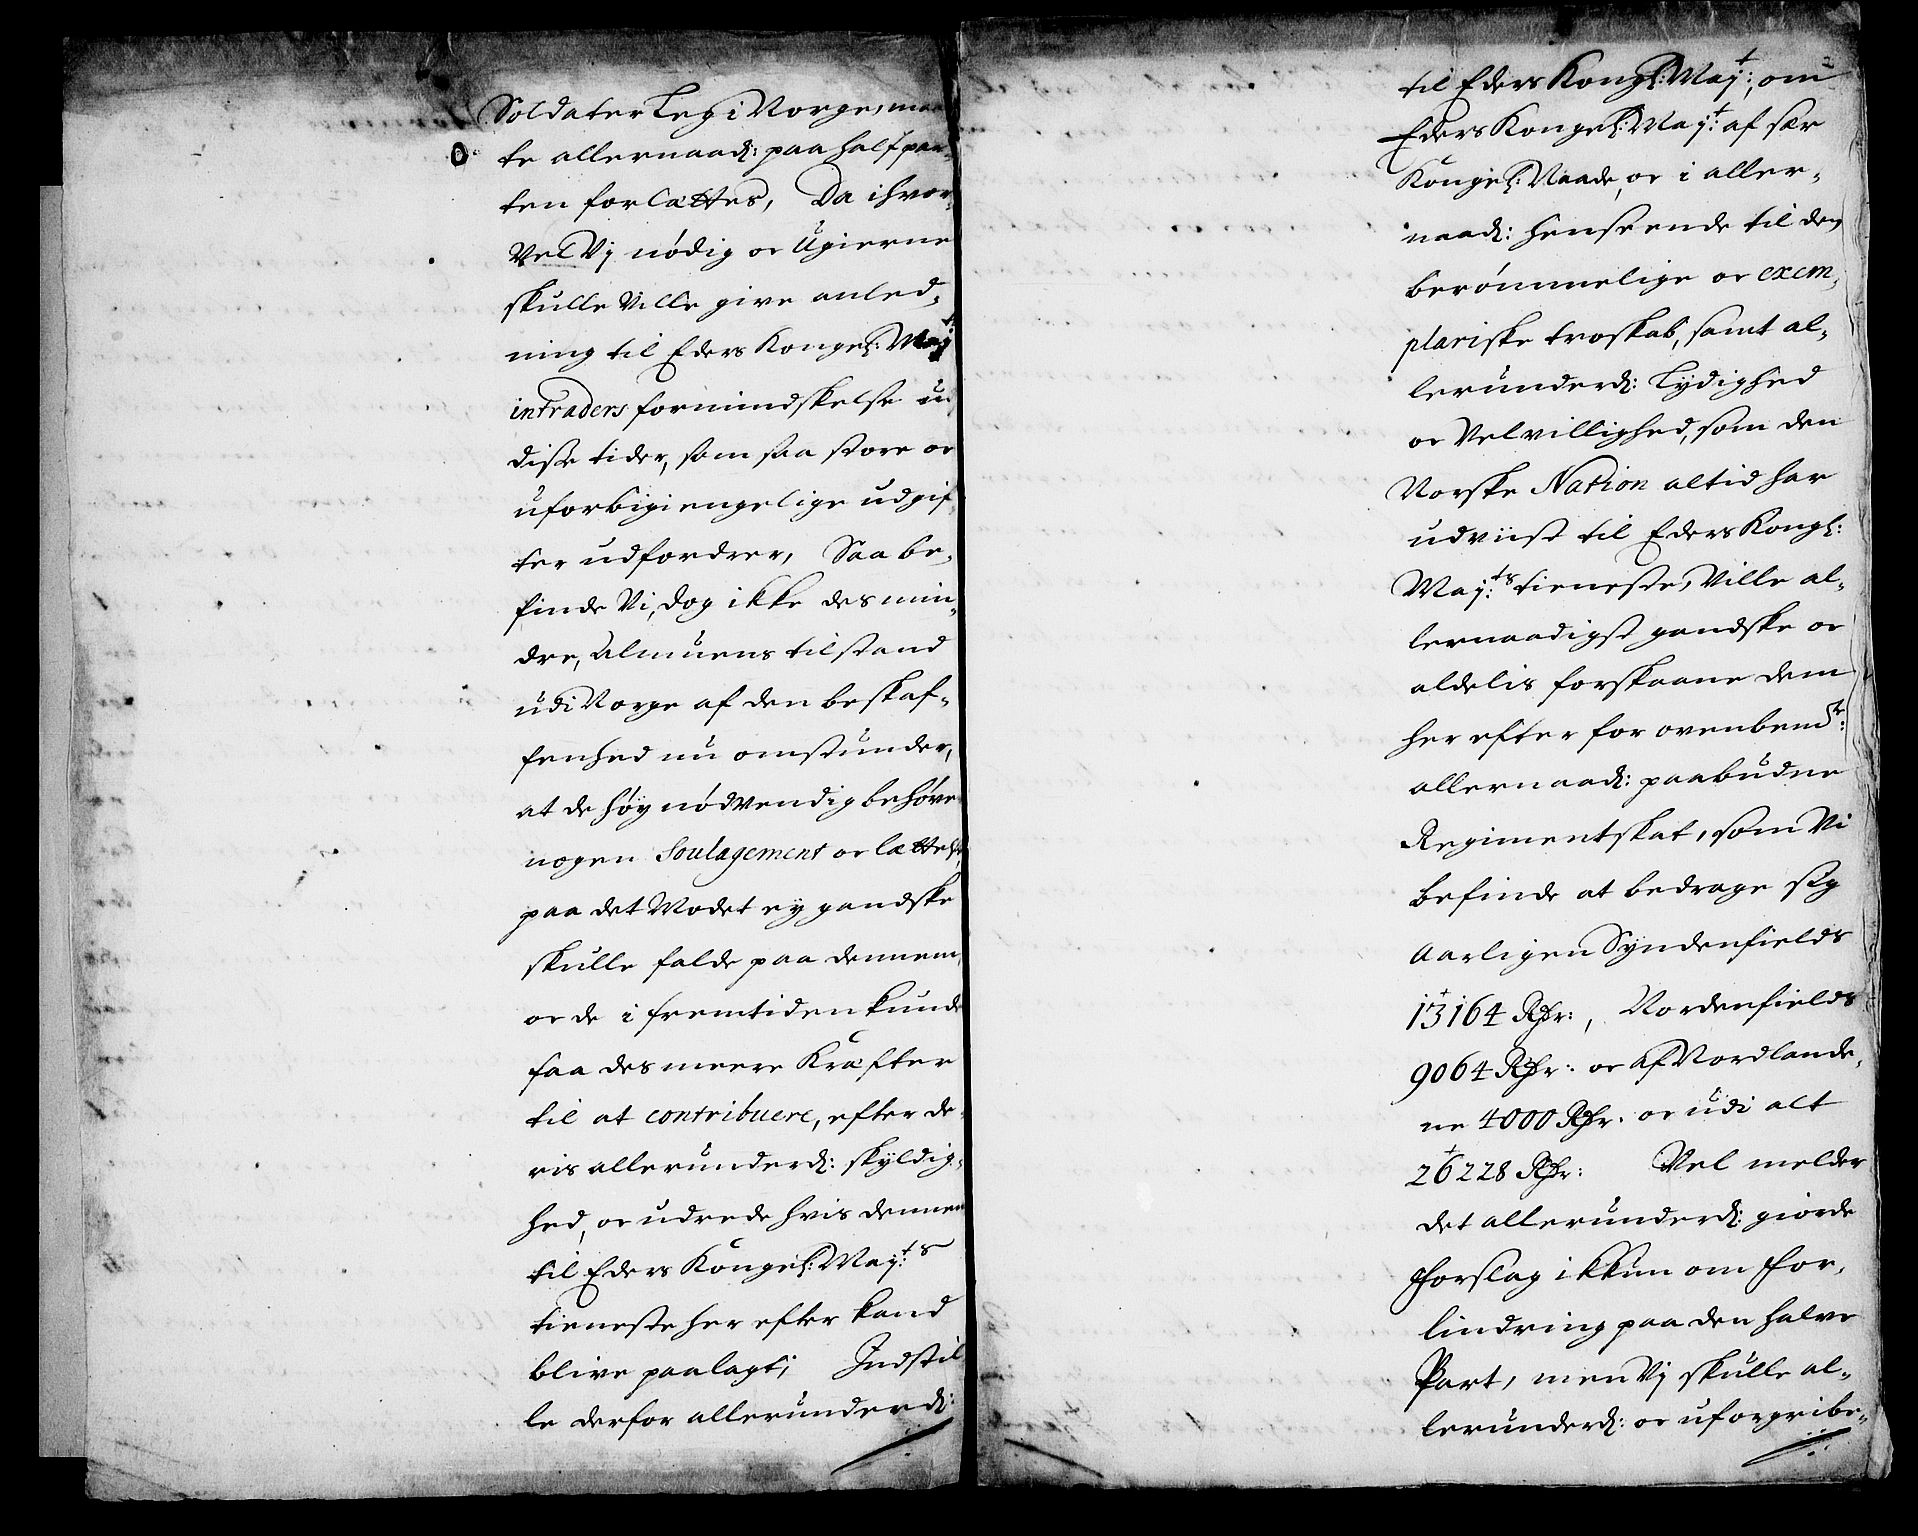 Soldater Leg i Norge, maa
te allernaad: paa half par¬
ten forlættes, Da ihvor¬
vel Vj nødig oc Ugierne
skulle ville give anled¬
ning til Eders Kongel: Mayts
intraders formindskelse u
disse tider, som saa store oc
uforbigiengelige udgif¬
ter udfordrer, Saa be¬
finde Vi, dog ikke des min¬
dre, Almuens tilstand
udi Norge af den beskaf¬
fenhed nu omstunder,
at de høy nødvendig behøve
nogen Soulagement oc lættelse,
paa det Modet ey gandske
skulle falde paa dennem,
oc de i fremtiden kunde
faa des meere Kræfter
til at contribuere, efter de¬
ris allerunderd: skyldig¬
hed, oc udrede hvis dennem
til Eders Kongel: May:ts
tieneste her efter kand
blive paalagt; Indstil
le derfor allerunderd:
til Eders Kongl: May:t, om
Eders Kongel: May:t af sær
Kongel: Naade, oc i aller¬
naad: henseende til den
berømmelige oc exem¬
plariske troskab, samt al¬
lerunderd: Lydighed
oc Velvillighed, som den
Norske Nation altid har
udviist til Eders Kongl:
May:ts tieneste, Ville al¬
lernaadigst gandske oc
aldelis forskaane dem
her efter for ovenbem:te
allernaad: paabudne
Regimentskat, som Vi
befinde at bedrage sig
Aarligen Syndenfields
13164 Rdr:, Nordenfields
9064 Rdr: oc af Nordlande¬
ne 4000 Rdr. oc udi alt
26228 Rdr: Vel melder
det allerunderd: giorde
Forslag ikkun om For¬
lindring paa den halve
Part, men Vj skulle al¬
lerunderd: oc uforgribe¬